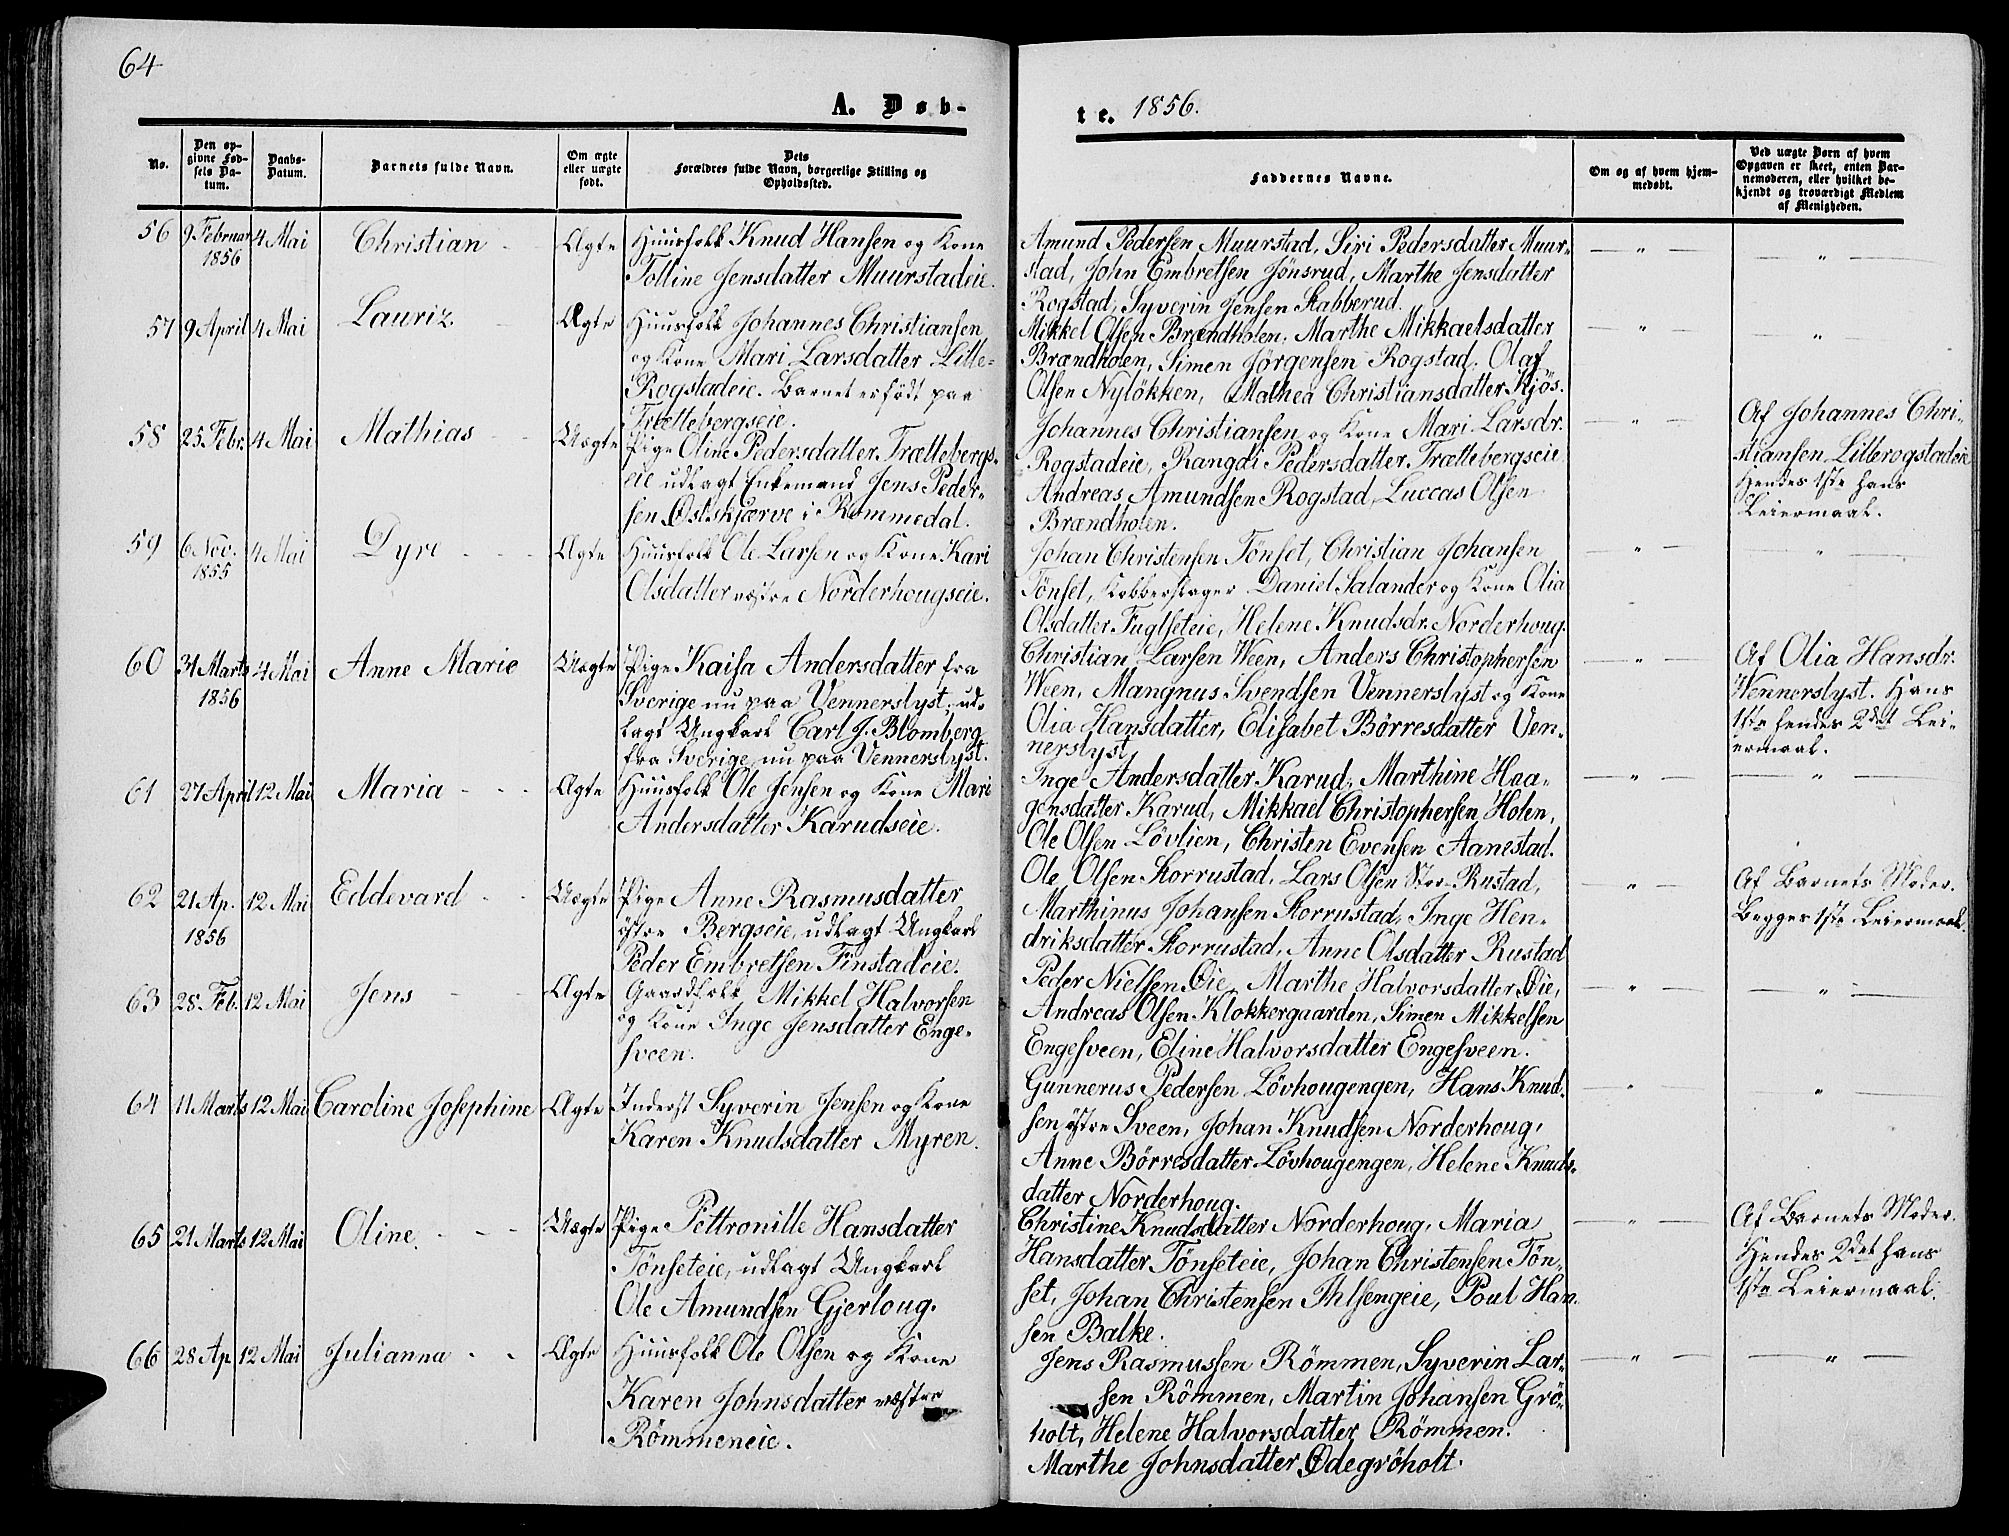 64
A. Døb-
te. 1856.
No.
Den op-
givne Fød-
sels Da-
tum.
Daabs-
Datum.
Barnets fulde Navn.
Om ægte
eller uægte
født.
Dets
Forældres fulde Navn, borgerlige Stilling og
Opholdssted.
Faddernes Navne.
Om og af hvem hjem-
medøbt.
Ved uægte Børn af hvem
Opgaven er skeet, enten Bar-
nemoderen, eller hvilket be-
kjendt og troværdigt Medlem
af Menigheden.
56 9 Februar 4 Mai Christian - Ægte Huusfolk Knud Hansen og Kone
1856
Tolline Jensdatter Muurstadeie.
Amund Pedersen Muurstad, Siri Pedersdatter Muur-
stad, John Embretsen Jönsrud, Marthe Jensdatter
Rogstad, Syverin Jensen Stabberud.
— " — — " —
57 9 April 4 Mai Lauriz. - Ægte Huusfolk Johannes Christiansen
og Kone Mari Larsdatter Lille-
Rogstadeie. Barnet er född paa
Trættebergseie.
Mikkel Olsen Brændholen, Marthe Mikkaelsdatter
Brændholen, Simen Jörgensen Rogstad. Olaf
Olsen Nylökken, Mathea Christiansdatter Kjös.
— " — — " —
58 25. Febr. 4 Mai Mathias - Uægte Pige Oline Pedersdatter Trættebergs-
eie udlagt Enkemand Jens Peder-
sen Östskjærve i Rommedal.
Johannes Christiansen og Kone Mari Larsdr.
Rogstadeie, Rangdi Pedersdatter Trættebergseie
Andreas Amundsen Rogstad, Luccas Olsen
Brændholen.
— " —
Af Johannes Chri-
stiansen Lillerogstadeie
Hendes 1ste hans
Leiermaal.
59 6 Nov. 4 Mai Dyre - - - Ægte Huusfolk Ole Larsen og Kone Kari
1855
Olsdatter vestre Norderhougseie.
Johan Christensen Tönset, Christian Johansen
Tönset, Kobberslager Daniel Salander og Kone Olia
Olsdatter Fuglseteie, Helene Knudsdr. Norderhoug.
— " — — " —
60 31 Marts 4 Mai Anne Marie Uægte Pige Kaisa Andersdatter fra
1856
Sverige nu paa Vennerslyst, ud-
lagt Ungkarl Carl J. Blomberg
fra Sverige, nu paa Vennerslyst.
Christian Larsen Ween, Anders Christophersen
Ween, Mangnus Svendsen Vennerslyst og Kone
Olia Hansdatter, Elisabet Börresdatter Ven-
nerslyst.
— " —
Af Olia Hansdr.
Wennerslyst. Hans
1ste hendes 2det Lei-
ermaal.
61 27 April 12 Mai Maria - - - Ægte Huusfolk Ole Jensen og Kone Mari
Andersdatter Karudseie.
Inge Andersdatter Karud, Marthine Haa-
gensdatter Karud, Mikkael Christophersen Holen,
Ole Olsen Lövlien, Christen Evensen Aanestad.
— " — — " —
62 21 Ap. 12 Mai Eddevard - - Uægte Pige Anne Rasmusdatter
1856
östre Bergseie, udlagt Ungkarl
Peder Embretsen Finstadeie.
Ole Olsen Storrustad, Lars Olsen Stor-Rustad,
Marthinus Johansen Storrustad, Inge Hen-
driksdatter Storrustad, Anne Olsdatter Rustad
— " —
Af Barnets Moder.
Begges 1ste Leiermaal.
63 28. Feb. 12 Mai Jens - - Ægte Gaardfolk Mikkel Halvorsen
og Kone Inge Jensdatter Enge-
sveen.
Peder Nielsen Öie, Marthe Halvorsdatter Öie,
Andreas Olsen Klokkergaarden, Simen Mikkelsen
Engesveen, Eline Halvorsdatter Engesveen.
— " — — " —
64 11 Marts 12 Mai Caroline Josephine Ægte Inderst Syverin Jensen og Kone
Karen Knudsdatter Myren.
Gunnerus Pedersen Lövhougengen, Hans Knud-
sen östre Sveen, Johan Knudsen Norderhoug,
Anne Börresdatter Lövhougengen, Helene Knuds-
datter Norderhoug.
— " — "
65 21 Marts 12 Mai Oline. - - Uægte Pige Pettronille Hansdatter
Tönseteie, udlagt Ungkarl
Ole Amundsen Gjerloug.
Christine Knudsdatter Norderhoug, Maria
Hansdatter Tönseteie, Johan Christensen Tön-
set, Johan Christensen Ihlsengeie, Poul Han-
sen Balke.
— " —
Af Barnets Moder.
Hendes 2det hans
1ste Leiermaal.
66 28 Ap 12 Mai Julianna - - Ægte Huusfolk Ole Olsen og Kone
Karen Johnsdatter vestre
Römmeneie.
Jens Rasmussen Römmen, Syverin Lar-
sen Römmen, Martin Johansen Grö-
holt, Helene Halvorsdatter Römmen.
Marthe Johnsdatter Ödegröholt.
— " — — " —